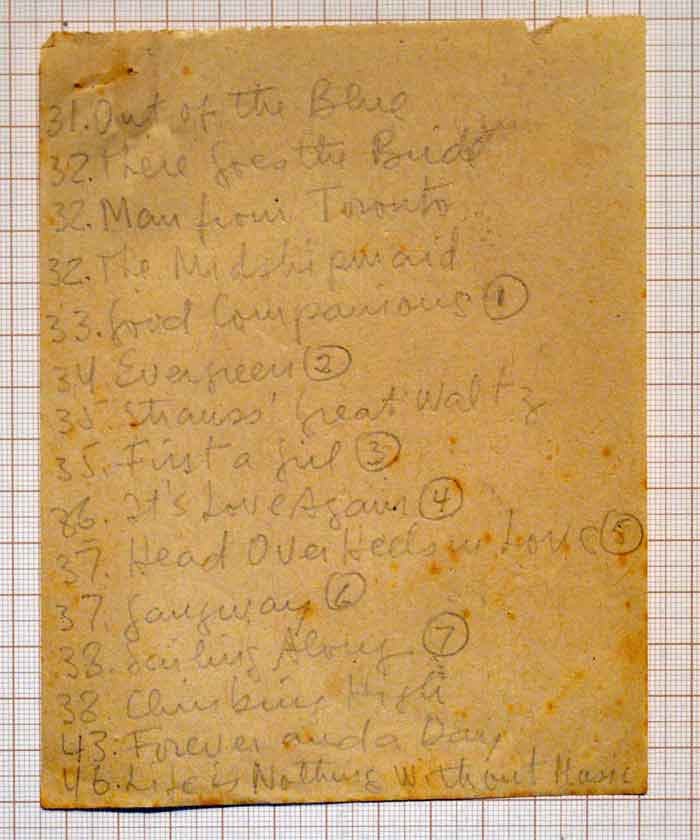 31. Out of the Blue
32. There Goes the Bride
32. Man from Toronto
32. The Midshipmaid
33. Good Companions ①
34 Evergreen ②
35 Strauss' Great Waltz
35. First a Girl ③
36. It's Love Again ④
37. Head Over Heels in Love ⑤
37. Gangway ⑥
38. Sailing Along ⑦
38 Climbing High
43. Forever and a Day
46. Life is Nothing Without Music